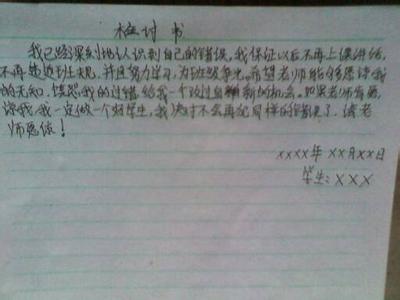 检讨书
我已经深刻地认识到自己的错误,我保证以后不再上课讲话,
不再违返班规,并且努力学习,为班级争光。希望老师能够原谅我
的无知,饶恕我的过错给我一个改过自新的机会。如果老师肯原
谅我,我一定做一个好学生,我决对不会再犯同样的错误了,请老
师愿谅!
xxxx年xx月xx日
学生:xxx